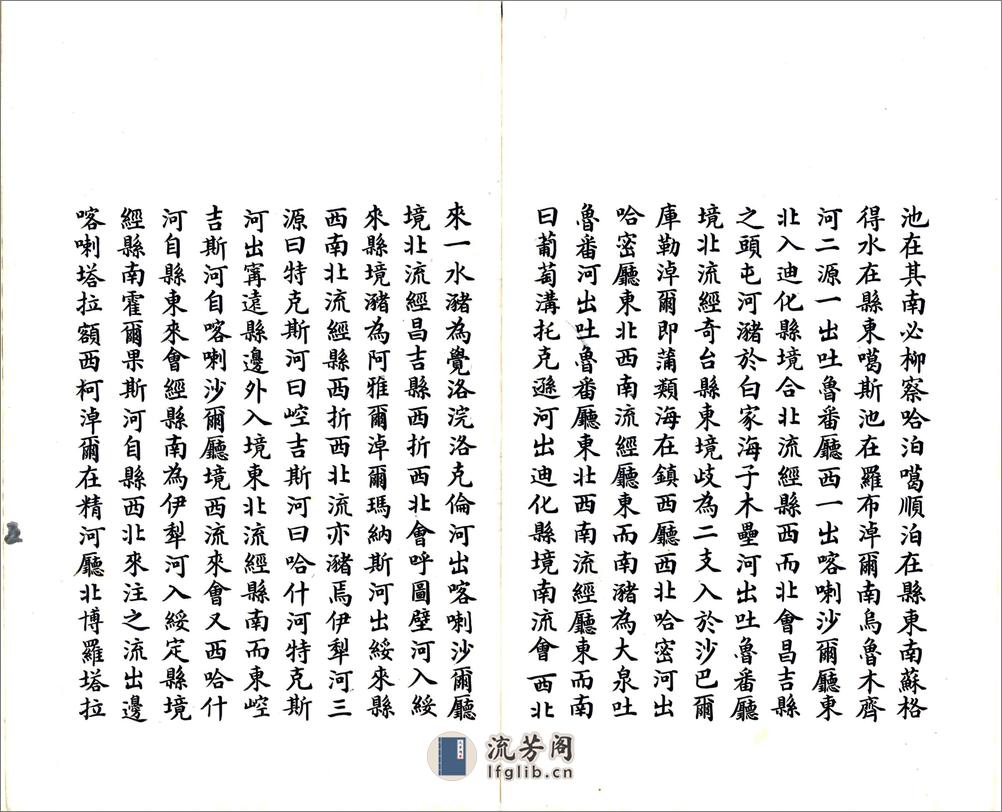 池在其南必柳察哈泊噶順泊在縣東南蘇格
得水在縣東噶斯池在羅布淖爾南烏魯木齊
河二源一出吐魯番廳西一出喀喇沙爾廳東
北入迪化縣境合北流經縣西而北會昌吉縣
之頭屯河瀦於白家海子木壘河出吐魯番廳
境北流經奇台縣東境歧為二支入於沙巴爾
庫勒淖爾即蒲類海在鎮西廳西北哈密河出
哈密廳東北西南流經廳東而南瀦為大泉吐
魯番河出吐魯番廳東北西南流經廳東而南
曰葡萄溝托克遜河出迪化縣境南流會西北
來一水瀦為覺洛浣洛克倫河出喀喇沙爾廳
境北流經昌吉縣西折西北會呼圖壁河入綏
來縣境瀦為阿雅爾淖爾瑪納斯河出綏來縣
西南北流經縣西折西北流亦瀦焉伊犁河三
源曰特克斯河曰崆吉斯河曰哈什河特克斯
河出寗遠縣邊外入境東北流經縣南而東崆
吉斯河自喀喇沙爾廳境西流來會又西哈什
河自縣東來會經縣南為伊犁河入綏定縣境
經縣南霍爾果斯河自縣西北來注之流出邊
喀喇塔拉額西柯淖爾在精河廳北博羅塔拉
五
流芳阁
lfglib.cn